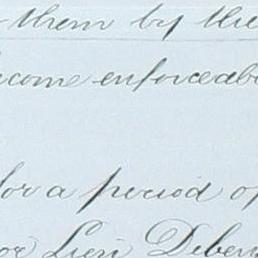 them by the
come enforceab
for a period of
or Lien Deben